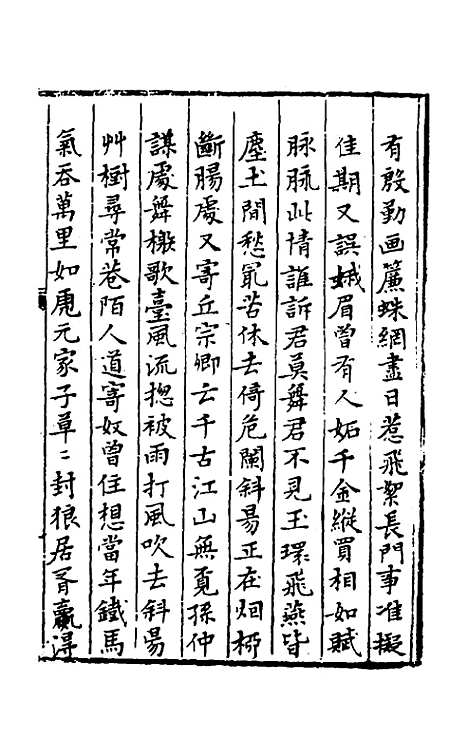 有殷勤画簷蛛網盡日惹飛絮長門事准擬
佳期又誤蛾眉曾有人妬千金縱買相如賦
脉脉此情誰訴君莫舞君不見玉環飛燕皆
塵土閒愁冣苦休去倚危闌斜昜正在烟柳
斷腸處又寄丘宗卿云千古江山無覔孫仲
謀處舞榭歌臺風流揔被雨打風吹去斜昜
艸樹尋常巷陌人道寄奴曾住想當年鐵馬
氣吞萬里如虎元家子草〻封狼居胥贏得